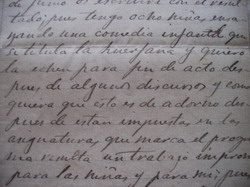 de Junio os escribire con el resul
tado; pues tengo ocho niñas ensa
yando una comedia infantil que
se titula la huerfana y quiero
la echen para fin de acto des
pues de algunos discursos y como
quiera que esto es de adorno des
pues de estan impuestas en las
asignaturas que marca el progra
ma resulta un trabajo impro
para las niñas y para mi; pues